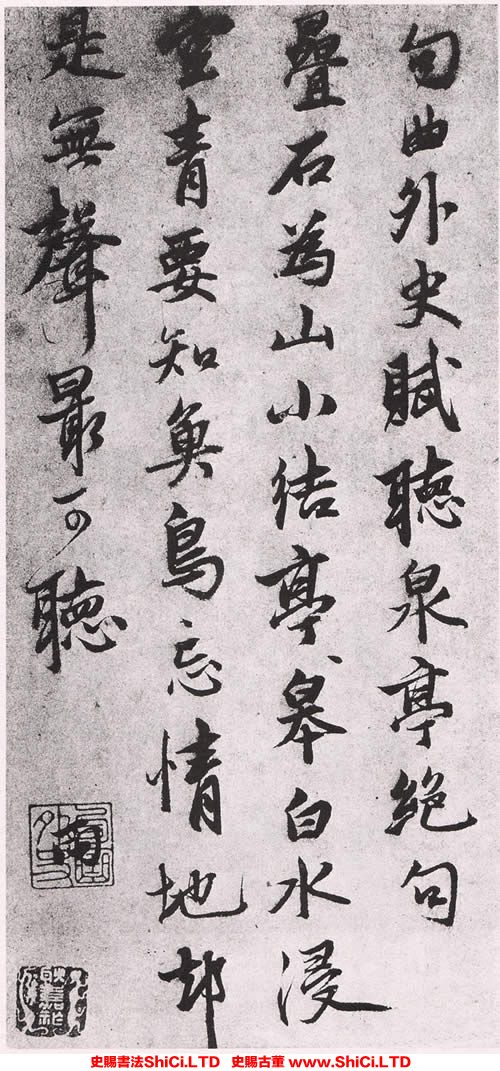 句曲外史賦聽泉亭絕句
疊石為山小結亭〻皋白水浸
空青要知魚鳥忘情地却
是無聲最可聽
雨
史賜書法ShiCi.LTD 史賜古董 www.ShiCi.LTD